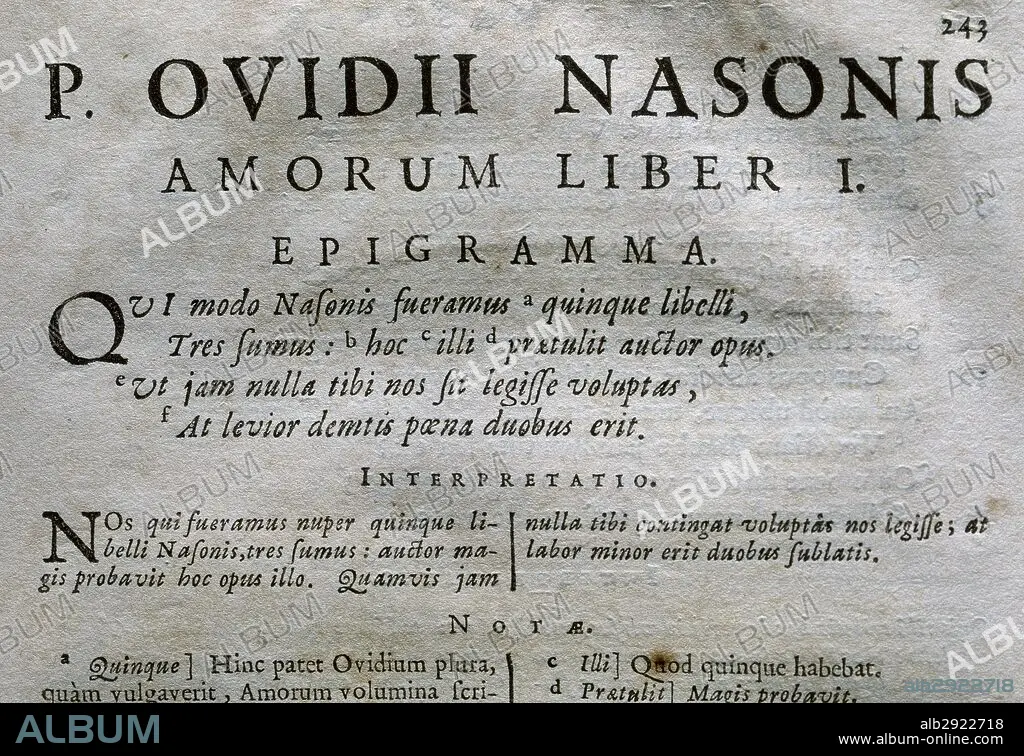 243
P. OVIDII NASONIS
AMORUM LIBER I.
EPIGRAMMA.
QVI modo Naſonis fueramus a quinque libelli,
Tres ſumus : b hoc c illi d prætulit auctor opus.
e Vt jam nulla tibi nos ſit legiſſe voluptas,
f At levior demtis pœna duobus erit.
INTERPRETATIO.
NOs qui fueramus nuper quinque li-
belli Naſonis, tres ſumus : auctor ma-
gis probavit hoc opus illo. Quamvis jam
nulla tibi contingat voluptàs nos legiſſe; at
labor minor erit duobus ſublatis.
NOTÆ.
a Quinque] Hinc patet Ovidium plura,
quàm vulgaverit, Amorum volumina ſcri-
c Illi] Quod quinque habebat.
d Prætulit] Magis probavit.
alb2922718
ALBUM
alb2922718
www.album-online.com